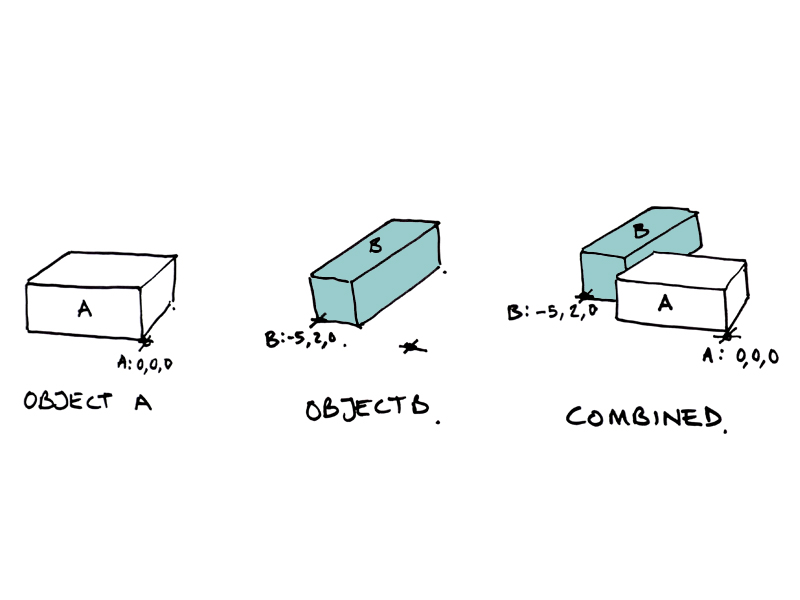 A
A: 0,0,0
OBJECT A
B
B:-5,2,0.
OBJECT B.
B
A
B: -5,2,0
A: 0,0,0
COMBINED.